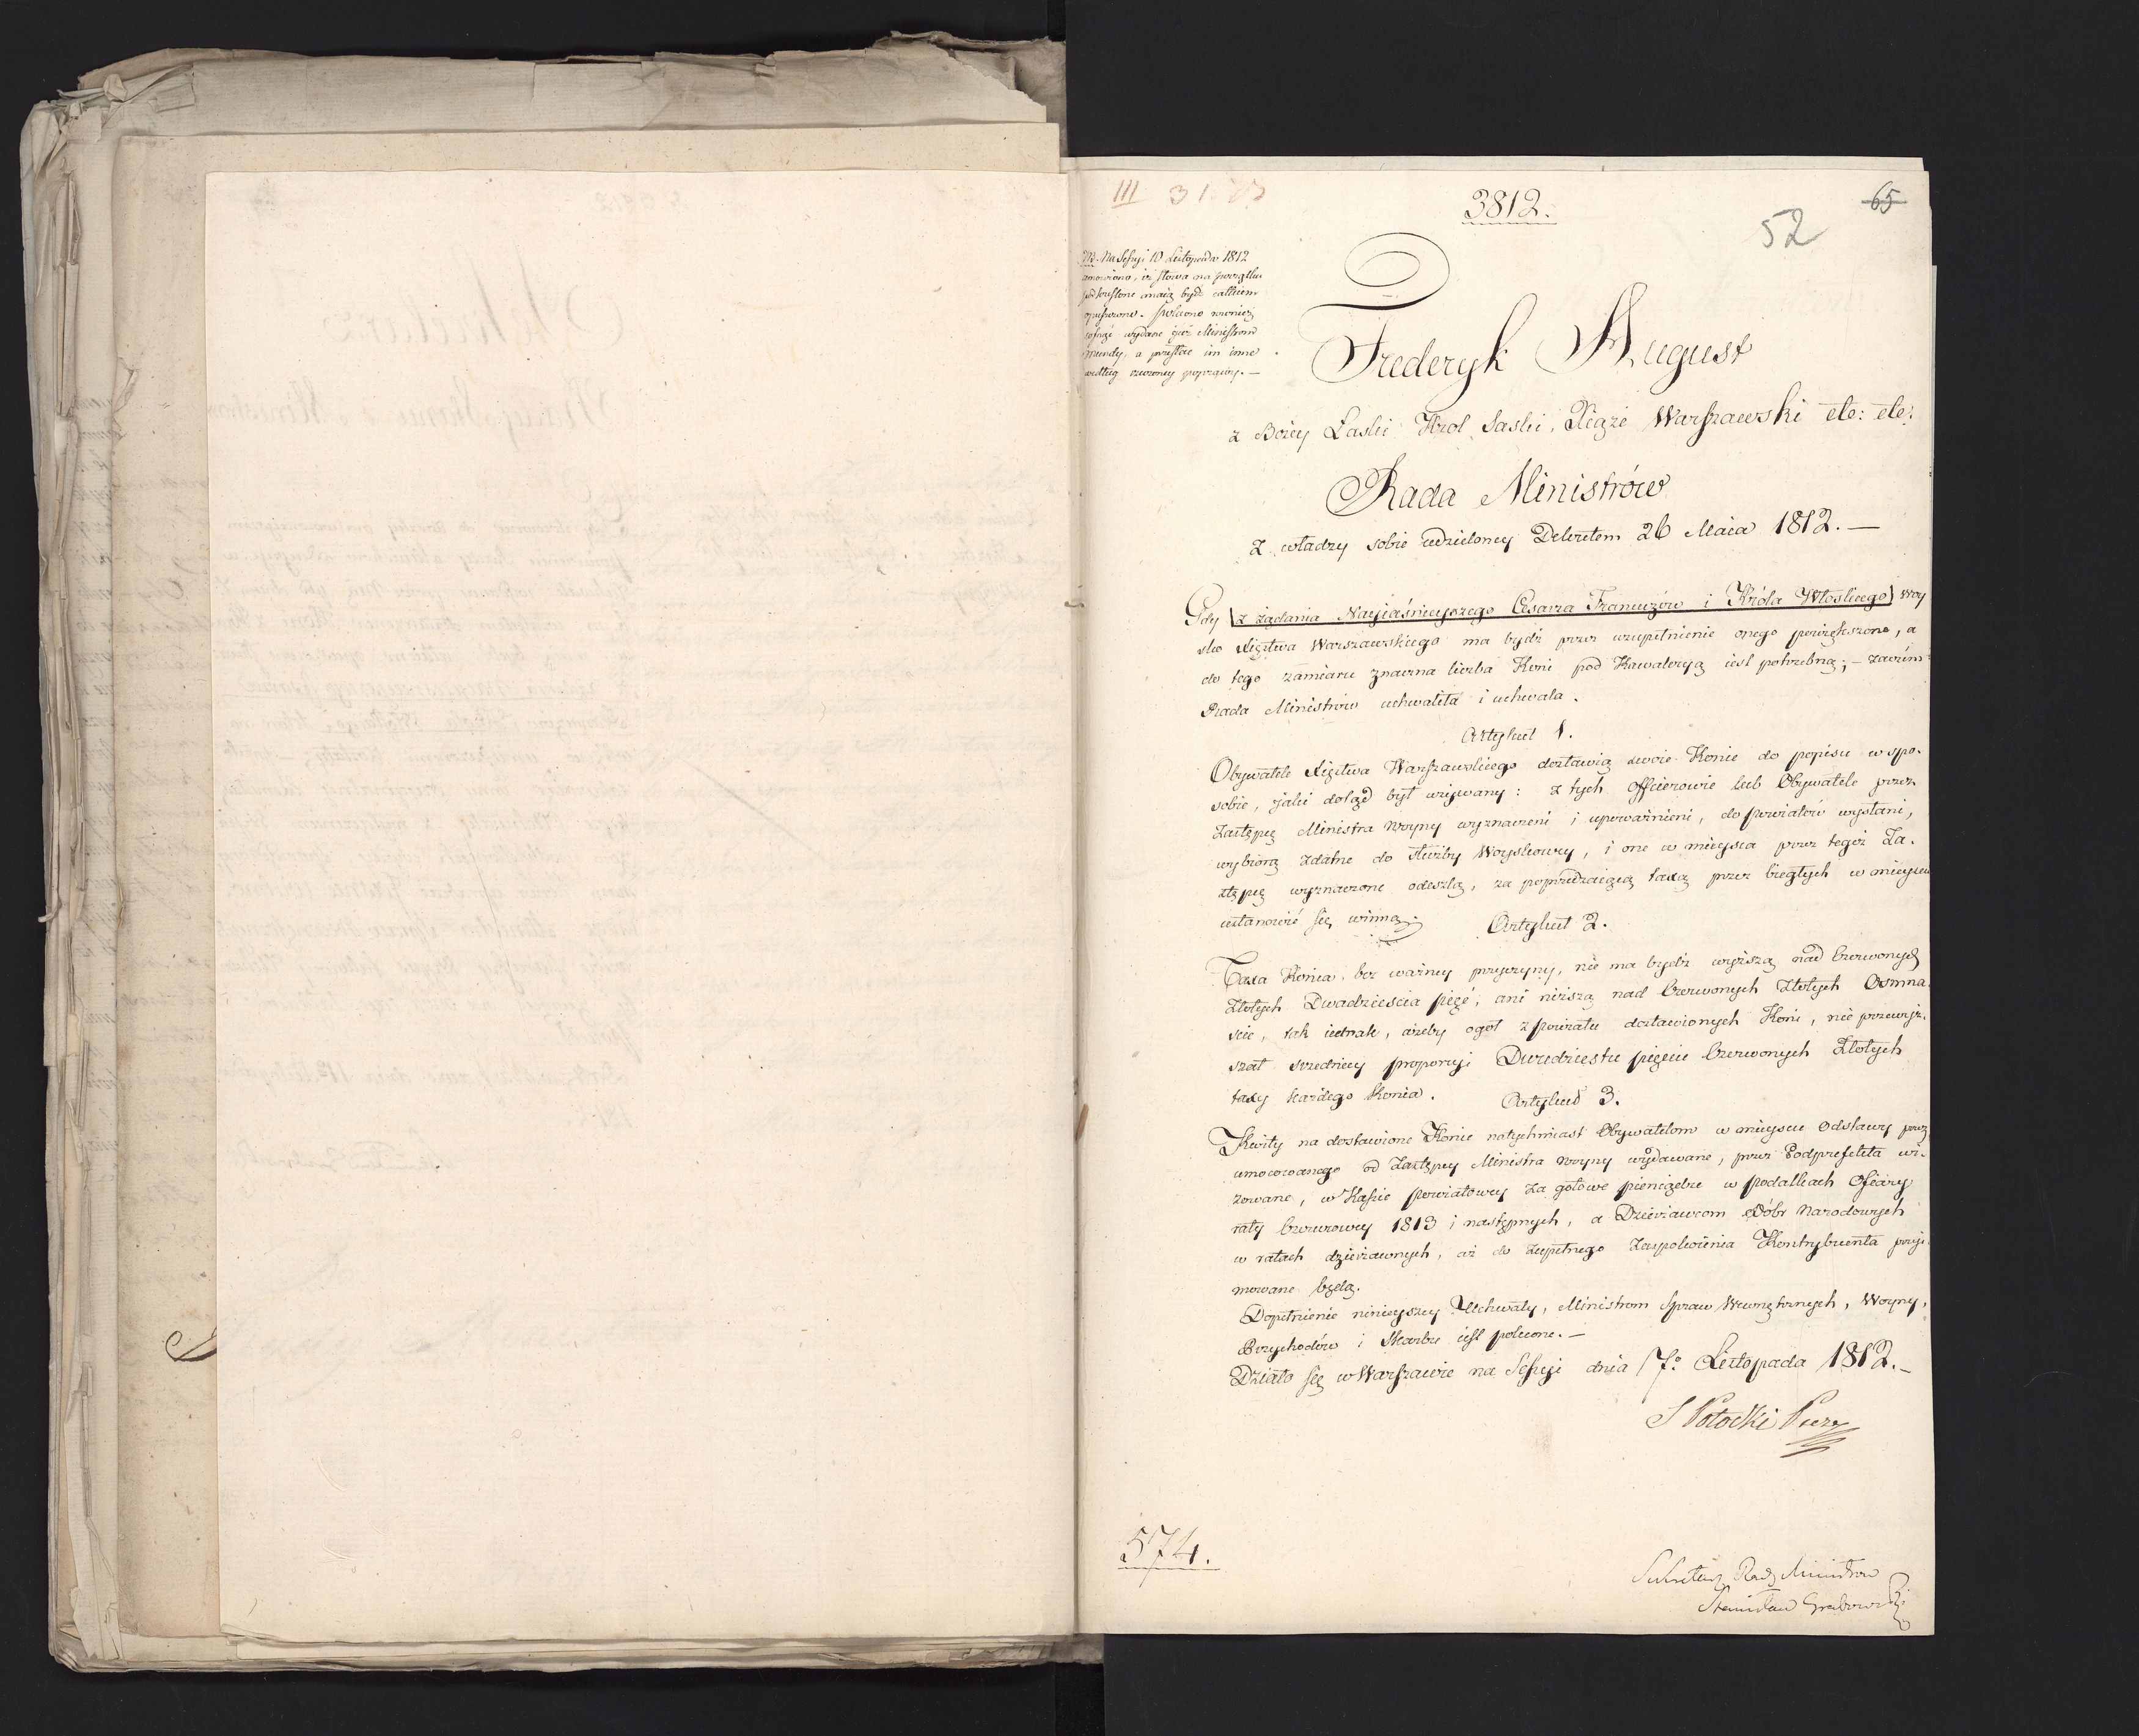 III 31.
3812.
65
52
NB. Na Sessyi 10 Listopada 1812
iż słowa na początku
podkreślone maią bydź całkiem
opuszczone. polecono również
cofnąć wydane iuż Ministrom
Mundy, a przesłać im inne
według rzeczoney poprawy. —
Frederyk August
z Bożey Łaski Krol Saski, Xiąże Warszawski etc: etc:
Rada Ministrów
Z władzy sobie udzieloney Dekretem 26 Maia 1812. —
Gdy z żądania Nayiaśnieyszego Cesarza Francuzów i Króla Włoskiego woy
sko Xięztwa Warszawskiego ma bydź przez uzupełnienie onego powiększone, a
do tego zamiaru znaczna liczba Koni pod Kawaleryą iest potrzebną; – zaczém
Rada Ministrów uchwaliła i uchwala.
Artykuł 1.
Obywatele Xięztwa Warszawskiego dostawią swoie Konie do popisu w spo-
sobie, jaki dotąd był używany: z tych Officerowie lub Obywatele przez
Zastępcę Ministra Woyny wyznaczeni i upoważnieni, do powiatów wysłani,
wybiorą zdatne do służby Woyskowey, i one w mieysca przez tegoż Za-
stępcę wyznaczone odeszlą, za poprzedzaiącą taxą przez biegłych w mieyscu
ustanowić się winną.
Artykuł 2.
Taxa Konia, bez ważney przyczyny, nie ma bydź wyższą nad Czerwonych
Złotych Dwadzieścia pięć, ani niższą nad Czerwonych Złotych Osmna
ście, tak iednak, ażeby ogół z powiatu dostawionych Koni, nie przewyż-
szał średniey proporcyi Dwudziestu pięciu Czerwonych Złotych
taxy każdego Konia.
Artykuł 3.
Kwity na dostawione Konie natychmiast Obywatelom w mieyscu Odstawy przez
umocowanego od Zastępcy Ministra Woyny wydawane, przez Podprefekta wi-
zowane, w Kassie powiatowey za gotowe pieniądze w podatkach Ofiary
raty Czerwcowey 1813 i następnych, a Dzierżawcom Dóbr Narodowych
w ratach dzierżawnych, aż do zupełnego Zaspokoienia Kontrybuenta przyi-
mowane będą.
Dopełnienie ninieyszey Uchwały, Ministrom Spraw Wewnętrznych, Woyny,
Przychodów i Skarbu iest polecone. —
Działo się w Warszawie na Sessyi dnia 7º Listopada 1812. —
S Potocki Prez
574.
Sekretarz Rady Ministrow
Stanisław Grabowski